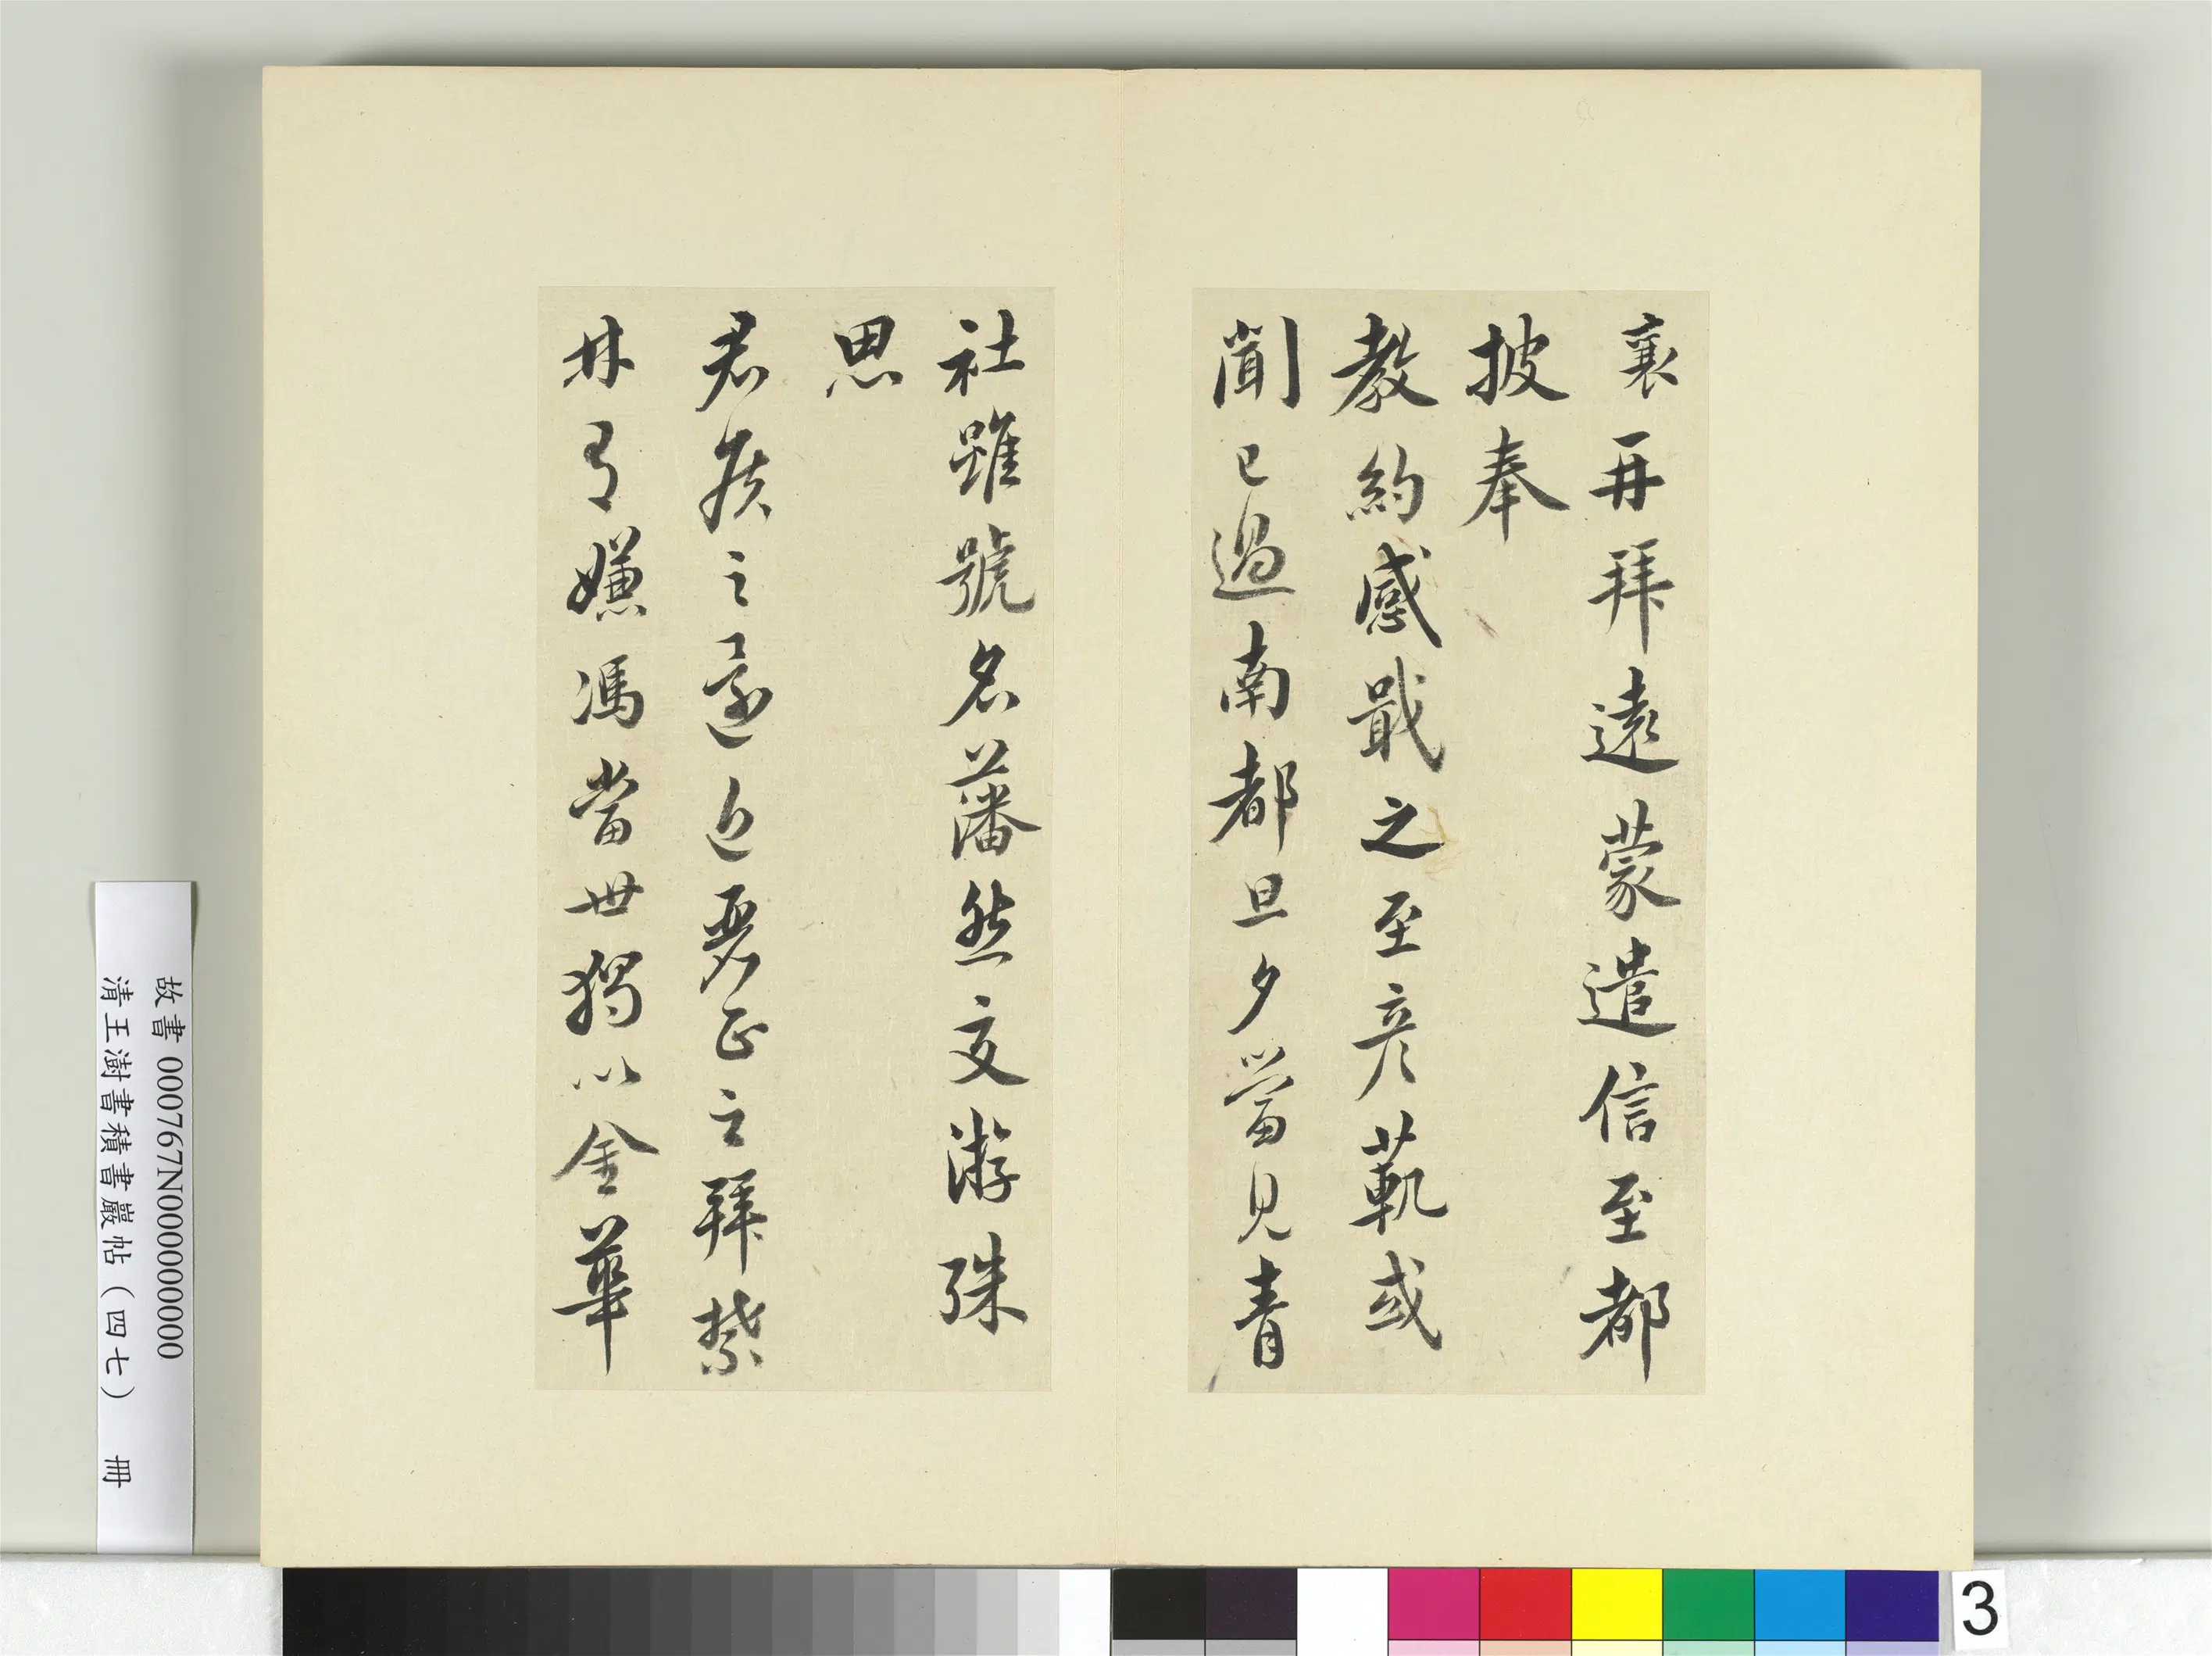 襄再拜遠蒙遣信至都
披奉
教約感戢之至彥範或
聞已過南都旦夕當見青
社雖號名藩然交游殊
思
君侯之還近麗正之拜禁
林有嫌馮當世獨以金華
故書 000767N000000000
清王澍書積書巖帖（四七） 冊
3